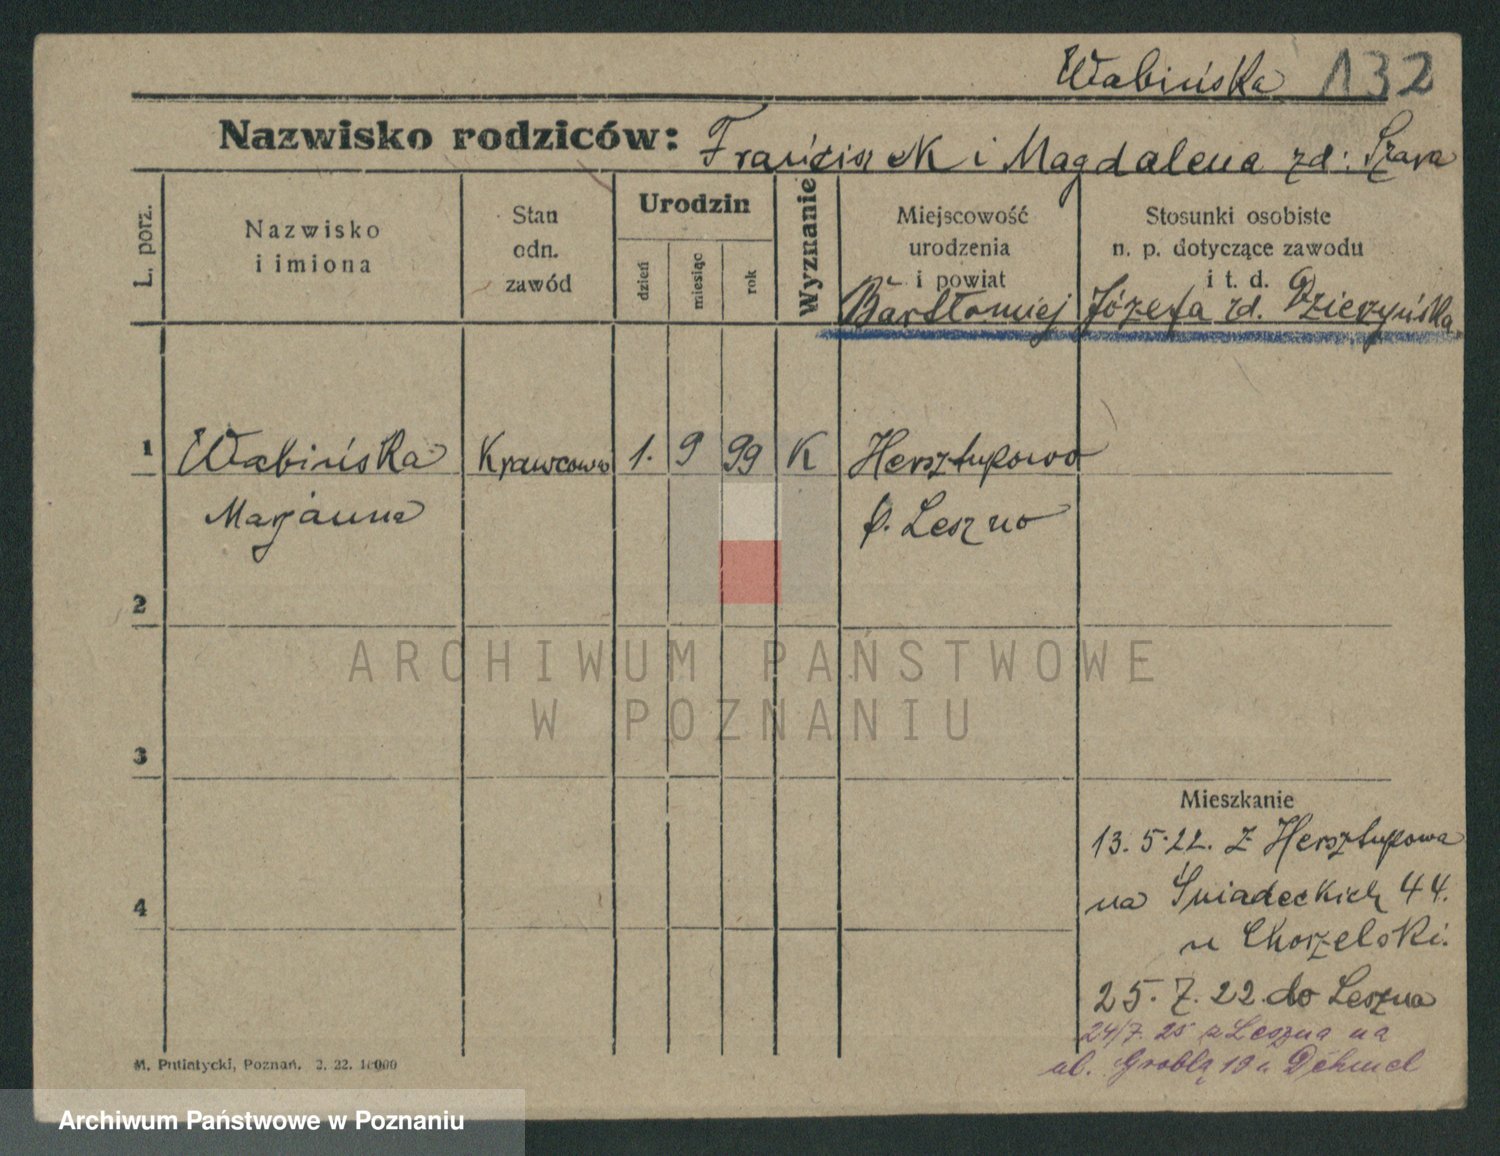 Wabińska 132
Nazwisko rodziców: Franciszek i Magdalena zd: Szara
L. porz.
Nazwisko
i imiona
Stan
odn.
zawód
Urodzin
dzień
miesiąc
rok
Wyznanie
Miejscowość
urodzenia
i powiat
Stosunki osobiste
n. p. dotyczące zawodu
i t. d.
Bartłomiej Józefa zd. Dzierzyńska
1 Wabińska Krawcowa 1. 9 99 K Hersztupowo
Marjanna p. Leszno
2
ARCHIWUM PAŃSTWOWE
W POZNANIU
3
Mieszkanie
13. 5. 22. z Hersztupowa
4
na Śniadeckich 44.
u Chorzelski.
25. 7. 22. do Leszna
24/7. 25 z Leszna na
ul. Groblą 10 u Dehmel
M. Putiatycki, Poznań. 2. 22. 10000
Archiwum Państwowe w Poznaniu